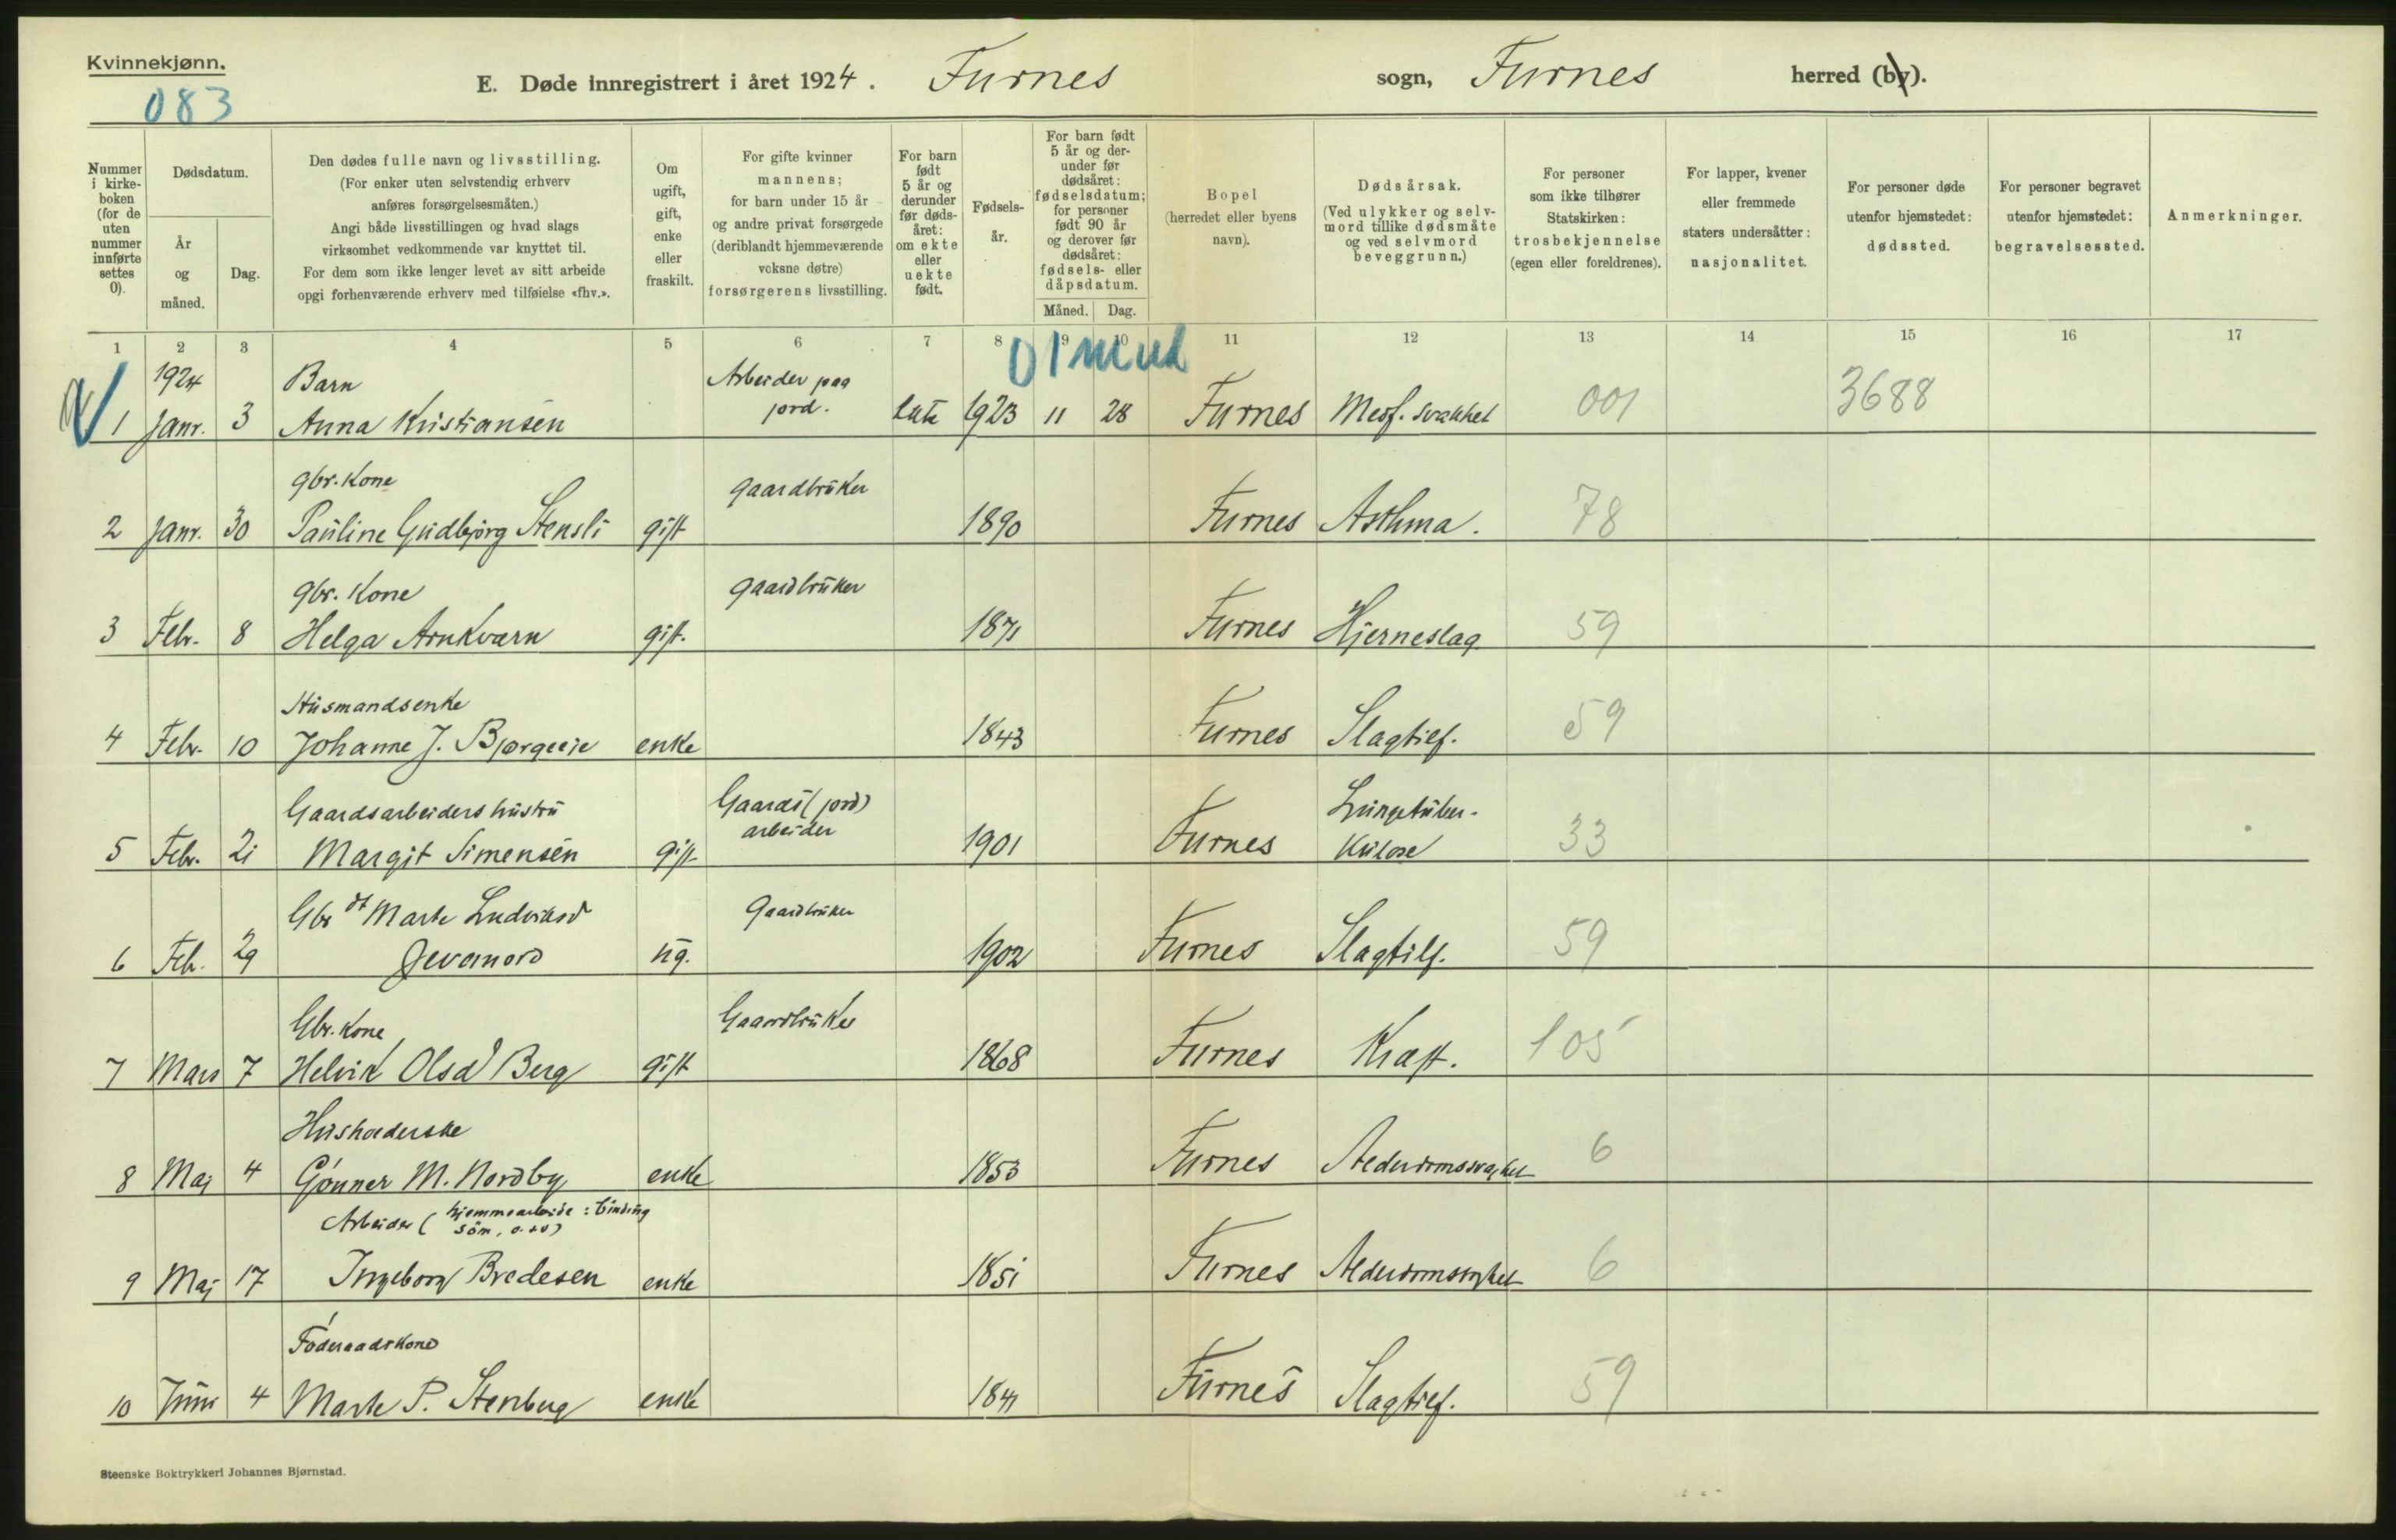 Kvinnekjønn.
083
E. Døde innregistrert i året 1924. Furnes sogn, Furnes herred (by).
Nummer i kirke- boken (for de uten nummer innførte settes 0).
Dødsdatum.
År og måned.
Dag.
Den dødes fulle navn og livsstilling.
(For enker uten selvstendig erhverv
anføres forsørgelsesmåten.)
Angi både livsstillingen og hvad slags
virksomhet vedkommende var knyttet til.
For dem som ikke lenger levet av sitt arbeide
opgi forhenværende erhverv med tilføielse «fhv.».
Om ugift, gift, enke eller fraskilt.
For gifte kvinner
mannens;
for barn under 15 år
og andre privat forsørgede
(deriblandt hjemmeværende
voksne døtre)
forsørgerens livsstilling.
For barn født 5 år og derunder før døds- året: om ekte eller uekte født.
Fødsels- år.
For barn født
5 år og der-
under før
dødsåret:
fødselsdatum;
for personer
født 90 år
og derover før
dødsåret:
fødsels- eller
dåpsdatum.
Måned. Dag.
Bopel
(herredet eller byens
navn).
Dødsårsak.
(Ved ulykker og selv-
mord tillike dødsmåte
og ved selvmord
beveggrunn.)
For personer
som ikke tilhører
Statskirken:
trosbekjennelse
(egen eller foreldrenes).
For lapper, kvener
eller fremmede
staters undersåtter:
nasjonalitet.
For personer døde
utenfor hjemstedet:
dødssted.
For personer begravet
utenfor hjemstedet:
begravelsessted.
Anmerkninger.
1 2 3 4 5 6 7 8 9 10 11 12 13 14 15 16 17
01 mnd
1924 Barn Arbeider paa
1 Janr. 3 Anna Kristiansen jord. 1923 11 28 Furnes Medf. svakhet 001 3688
gbr. Kone gaardbruker
2 Janr. 30 Pauline Gudbjörg Stensli gift 1890 Furnes Asthma. 78
gbr. Kone gaardbruker
3 Febr. 8 Helga Arnkværn gift. 1871 Furnes Hjerneslag 59
Husmandsenke
4 Febr. 10 Johanne J. enke 1843 Furnes Slagtilf. 59
Gaardsarbeiders hustru Gaards (jord) Lungetuber-
5 Febr. 21 Margit Simensen gift arbeider 1901 Furnes kulose 33
Gbr dt Marte Ludviksd Gaardbruker
6 Feb. 29 ug. 1902 Furnes Slagtilf. 59
Gbr. Kone Gaardbruker
7 Mars 7 Helvik Olsd Berg gift 1868 Furnes Kræft. 105
Husholderske
8 Mai 4 Gönner M. Nordby enke 1853 Furnes Alderdomssvakhet 6
Arbeider (hjemmearbeide: binding
söm, o.s.v)
9 Mai 17 Ingeborg Bredesen enke 1851 Furnes Alderdomssvakhet 6
Föderaadskone
10 Juni 4 Marte P. Stenberg enke 1841 Furnes Slagtilf. 59
Steenske Boktrykkeri Johannes Bjørnstad.